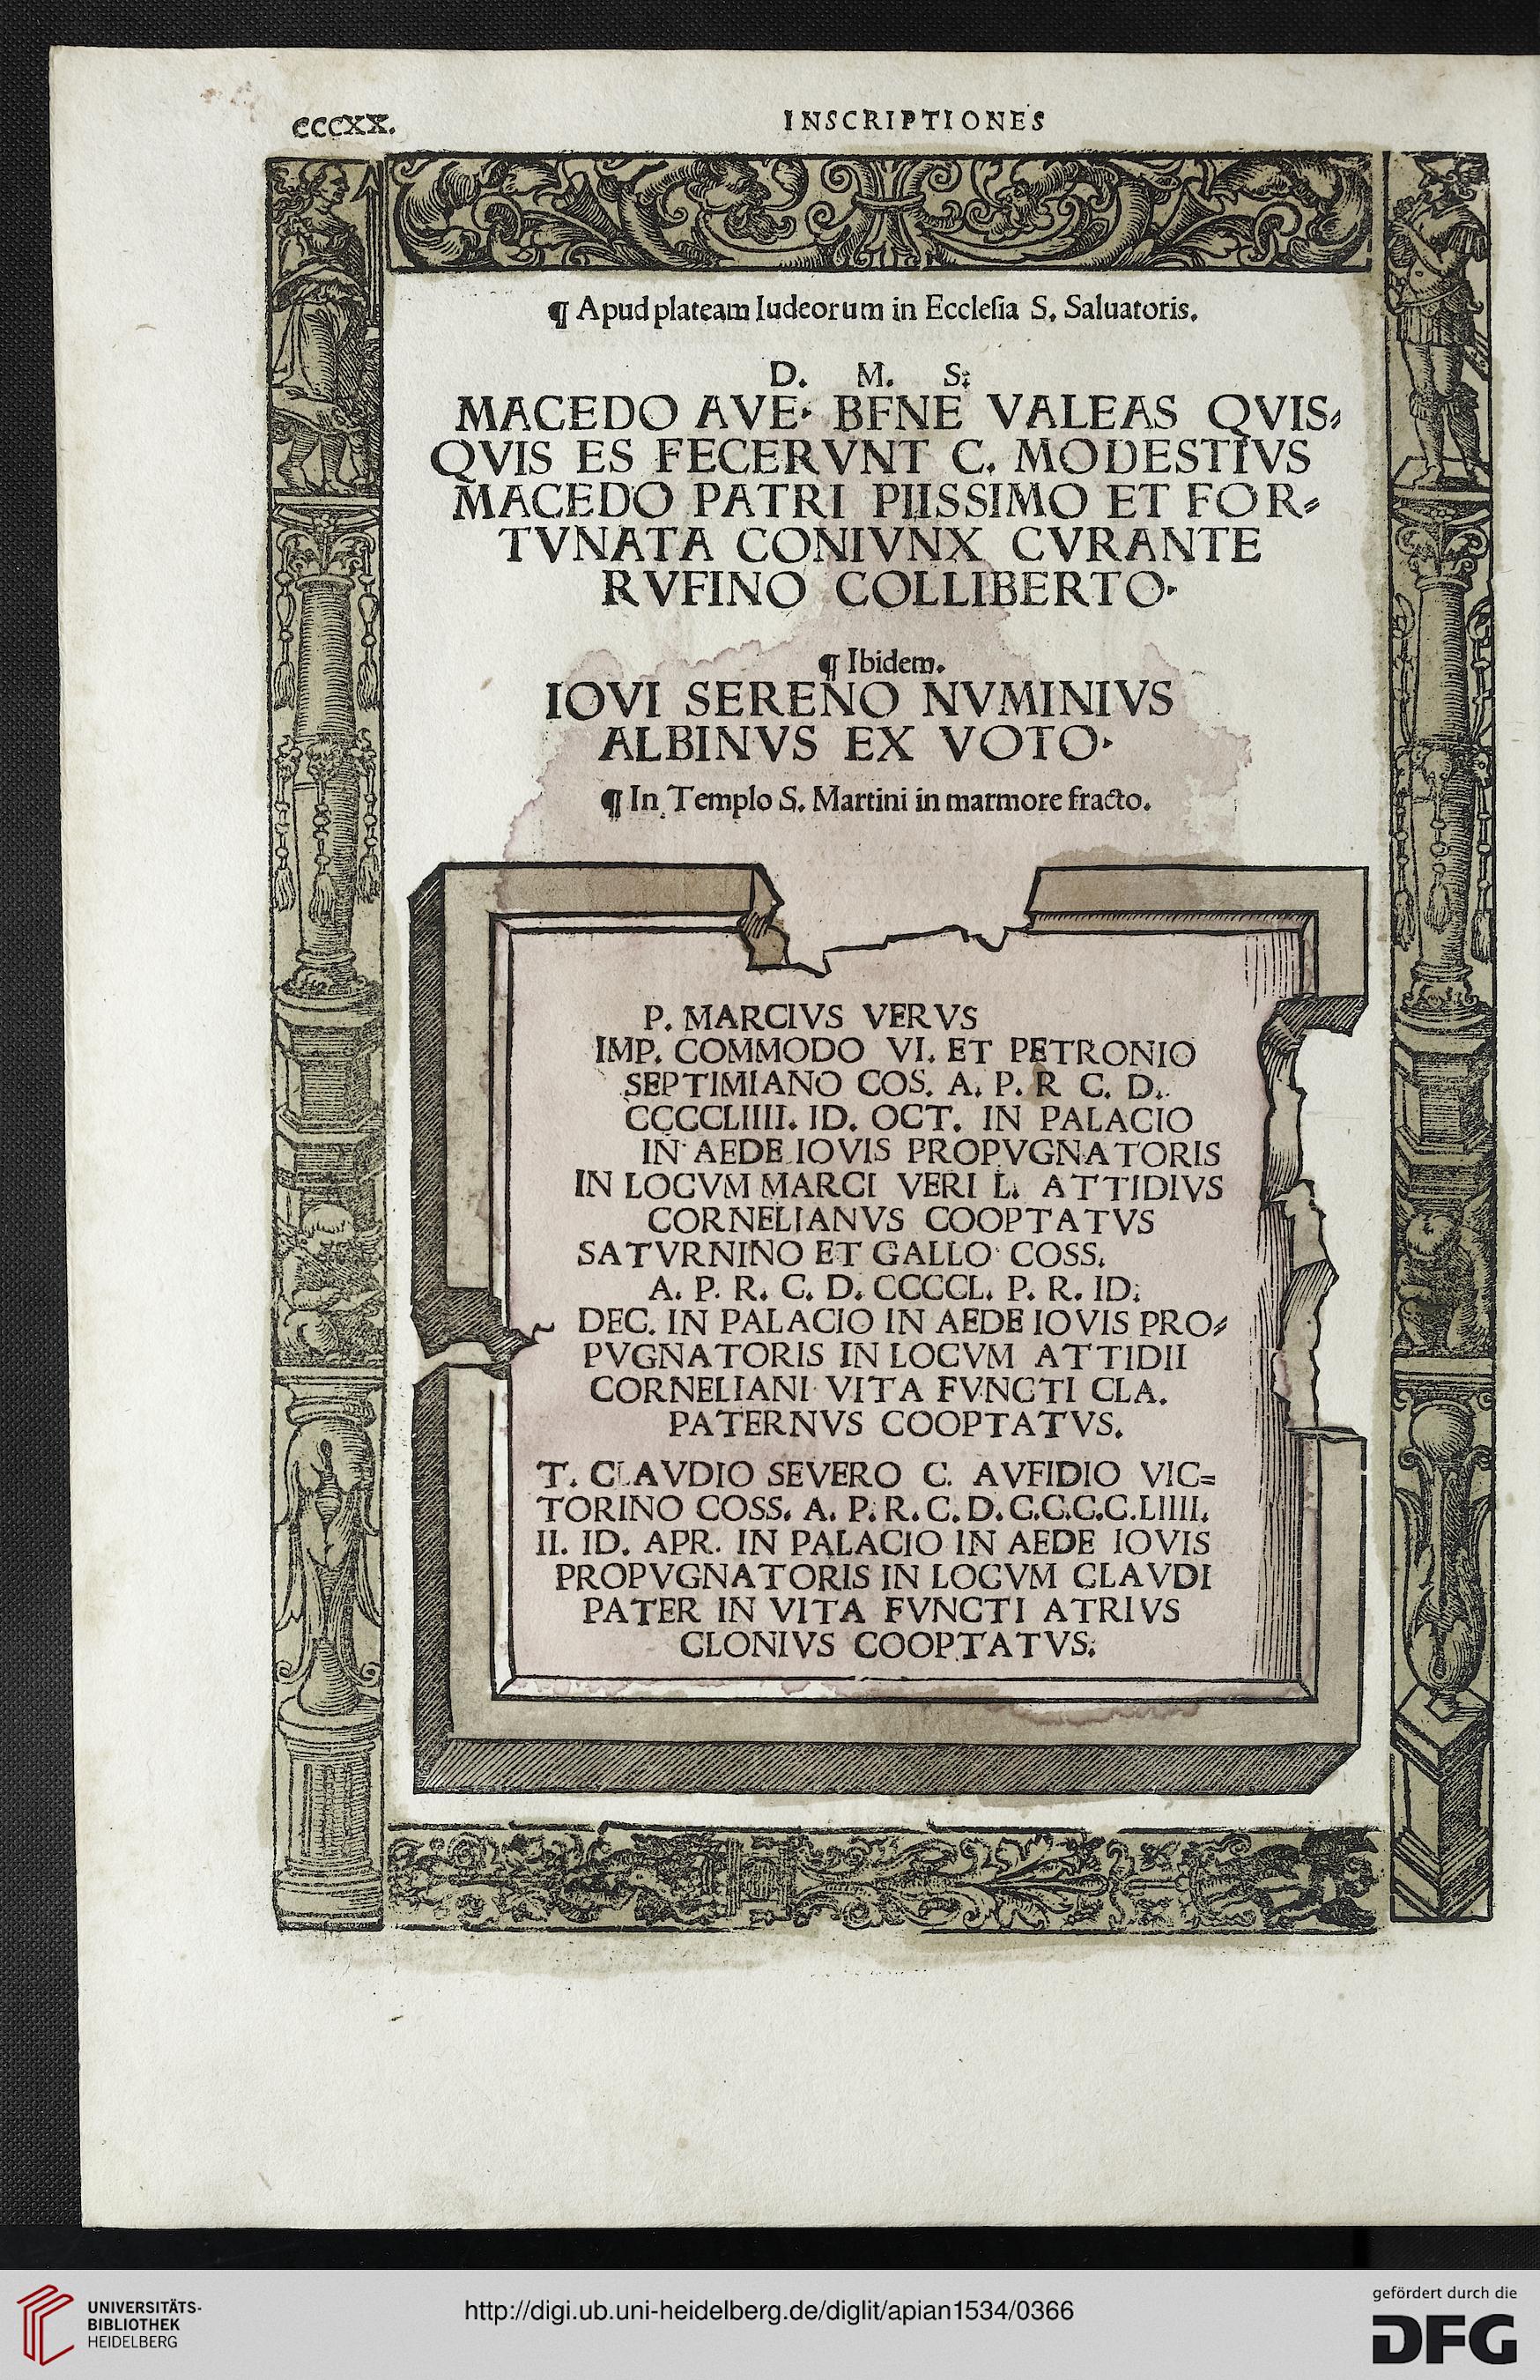 cccxx.
INSCRIPTIONES
¶ Apud plateam Iudeorum in Ecclesia S. Saluatoris.
D. M. S.
MACEDO AVE· BFNE VALEAS QVIS⸗
QVIS ES FECERVNT C. MODESTIVS
MACEDO PATRI PIISSIMO ET FOR⸗
TVNATA CONIVNX CVRANTE
RVFINO COLLIBERTO·
¶ Ibidem.
IOVI SERENO NVMINIVS
ALBINVS EX VOTO·
¶ In Templo S. Martini in marmore fracto.
P. MARCIVS VERVS
IMP. COMMODO VI. ET PETRONIO
SEPTIMIANO COS. A. P. R C. D.
CCCCLIIII. ID. OCT. IN PALACIO
IN AEDE IOVIS PROPVGNATORIS
IN LOCVM MARCI VERI L. ATTIDIVS
CORNELIANVS COOPTATVS
SATVRNINO ET GALLO COSS.
A. P. R. C. D. CCCCL. P. R. ID.
DEC. IN PALACIO IN AEDE IOVIS PRO⸗
PVGNATORIS IN LOCVM ATTIDII
CORNELIANI VITA FVNCTI CLA.
PATERNVS COOPTATVS.
T. CLAVDIO SEVERO C. AVFIDIO VIC=
TORINO COSS. A. P. R. C. D. C.C.C.C.LIIII.
II. ID. APR. IN PALACIO IN AEDE IOVIS
PROPVGNATORIS IN LOCVM CLAVDI
PATER IN VITA FVNCTI ATRIVS
CLONIVS COOPTATVS.
UNIVERSITÄTS-
BIBLIOTHEK
HEIDELBERG
http://digi.ub.uni-heidelberg.de/diglit/apian1534/0366
gefördert durch die
DFG